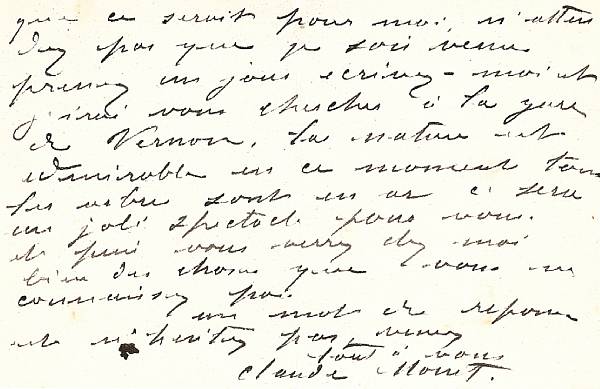 que ce serait pour moi, n'atten
dez pas que je sois venu
prenez un jour écrivez-moi et
j'irai vous chercher à la gare
de Vernon, la nature est
admirable en ce moment tous
les arbres sont en or ce sera
un joli spectacle pour vous.
et puis vous verrez chez moi
bien des choses que vous ne
connaissez pas.
un mot de réponse
et n'hésitez pas, venez
tout à vous
Claude Monet.